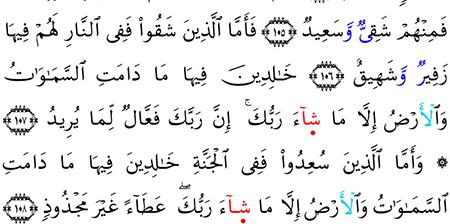 فَمِنْهُمْ شَقِىٌّ وَسَعِيدٌ ۝١٠٥ فَأَمَّا الَّذِينَ شَقُوا۟ فَفِى النَّارِ لَهُمْ فِيهَا
زَفِيرٌ وَشَهِيقٌ ۝١٠٦ خَـٰلِدِينَ فِيهَا مَا دَامَتِ السَّمَـٰوَٰتُ
وَالْأَرْضُ إِلَّا مَا شَآءَ رَبُّكَ ۚ إِنَّ رَبَّكَ فَعَّالٌ لِّمَا يُرِيدُ ۝١٠٧
۞ وَأَمَّا الَّذِينَ سُعِدُوا۟ فَفِى الْجَنَّةِ خَـٰلِدِينَ فِيهَا مَا دَامَتِ
السَّمَـٰوَٰتُ وَالْأَرْضُ إِلَّا مَا شَآءَ رَبُّكَ ۖ عَطَآءً غَيْرَ مَجْذُوذٍ ۝١٠٨